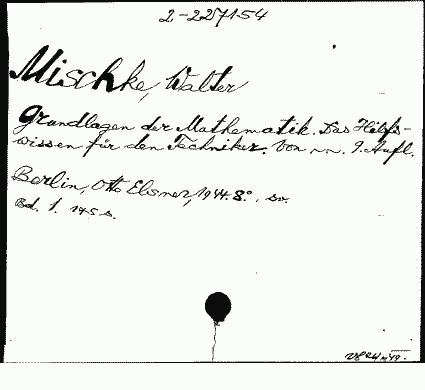 2-227154
Mischke, Walter
Grundlagen der Mathematik. Das Hilfs-
wissen für den Techniker. Von ~~. 9. Aufl.
Berlin, Otto Elsner, 1944. 8°.
Bd. 1. 145 S.